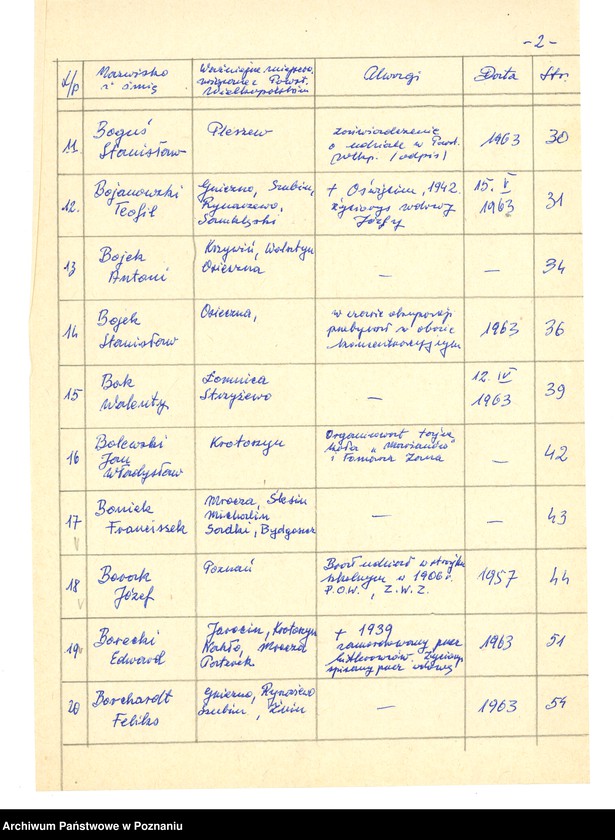 -2-
L/p
Nazwisko
i imię
Ważniejsze miejscow.
związane z Powst.
Wielkopolskim
Uwagi
Data
Str.
11.
Boguś
Stanisław
Pleszew
zaświadczenie
o udziale w Powst.
Wlkp. (odpis)
1963
30
12.
Bojanowski
Teofil
Gniezno, Szubin,
Rynarzewo,
+ Oświęcim, 1942.
życiorys wdowy
Józefy
15. V
1963
31
13
Bojek
Antoni
Krzywiń,
Osieczna
—
—
34
14
Bojek
Stanisław
Osieczna,
w czasie okupacji
przebywał w obozie
koncentracyjnym
1963
36
15
Bok
Walenty
Łomnica
Strzyżewo
—
12. IV
1963
39
16
Bolewski
Jan
Władysław
Krotoszyn
Organizował tajne
koła "Marianów"
i Tomasza Zana
—
42
17
Boniek
Franciszek
Mrocza, Ślesin
Michalin
Sadki, Bydgoszcz
—
—
43
18
Borak
Józef
Poznań
Brał udział w strajku
szkolnym w 1906 r.
P.O.W., Z.W.Z.
1957
44
19
Borecki
Edward
Jarocin, Krotoszyn
Nakło, Mrocza
+ 1939
zamordowany przez
hitlerowców. Życiorys
spisany przez wdowę
1963
51
20
Borchardt
Feliks
Gniezno, Rynarzewo
Szubin, Żnin
—
1963
54
Archiwum Państwowe w Poznaniu